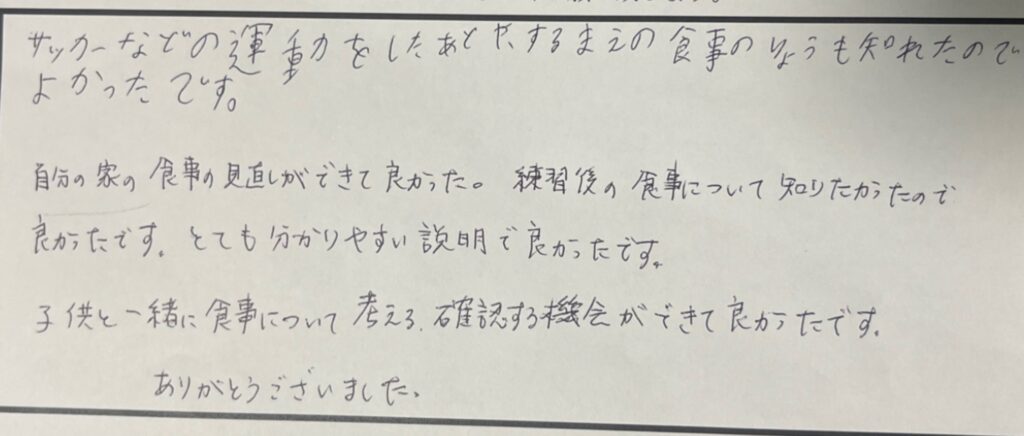 サッカーなどの運動をしたあとや、するまえの食事のりょうも知れたので
よかったです。
自分の家の食事の見直しができて良かった。練習後の食事について知りたかったので
良かったです。とても分かりやすい説明で良かったです。
子供と一緒に食事について考える、確認する機会ができて良かったです。
ありがとうございました。